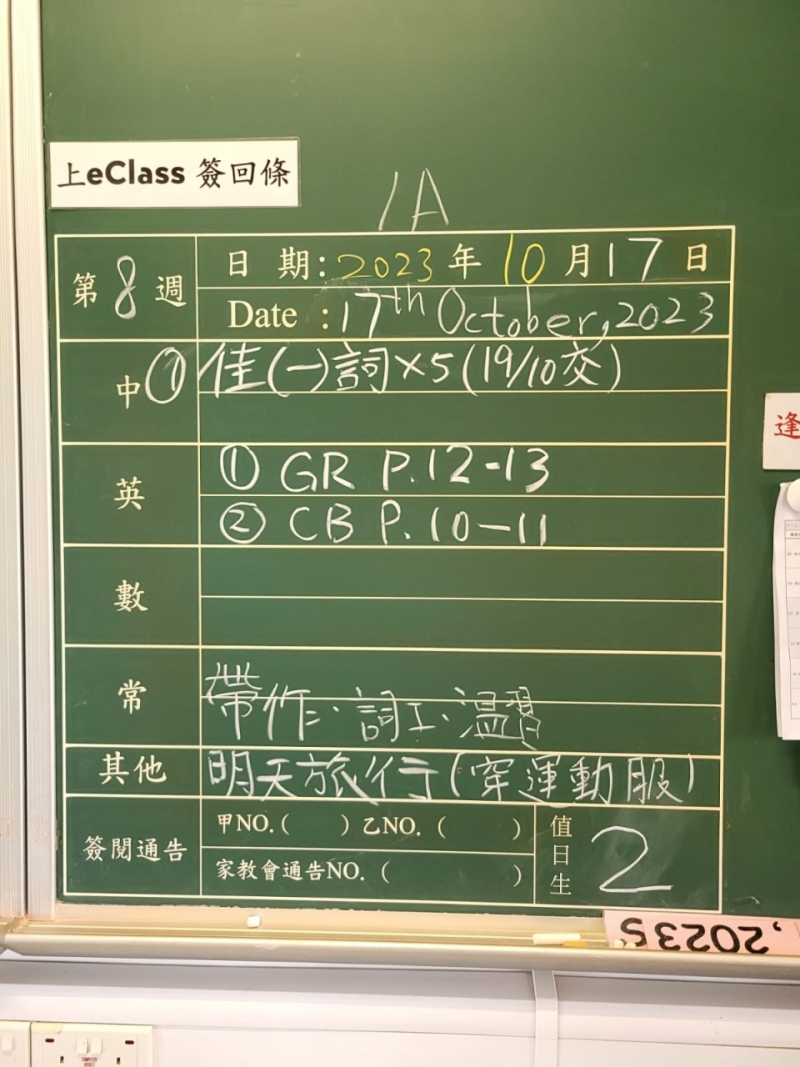 上eClass 簽回條
1A
第8週
日期:2023年10月17日
Date:17th October,2023
中 ① 佳(一)詞×5(19/10交)
英 ① GR P.12-13
② CB P.10-11
數
常 帶作二·詞工·温習
其他 明天旅行(穿運動服)
簽閱通告 甲NO.( ) 乙NO.( )
家教會通告NO.( )
值日生 2
逢
,2023S